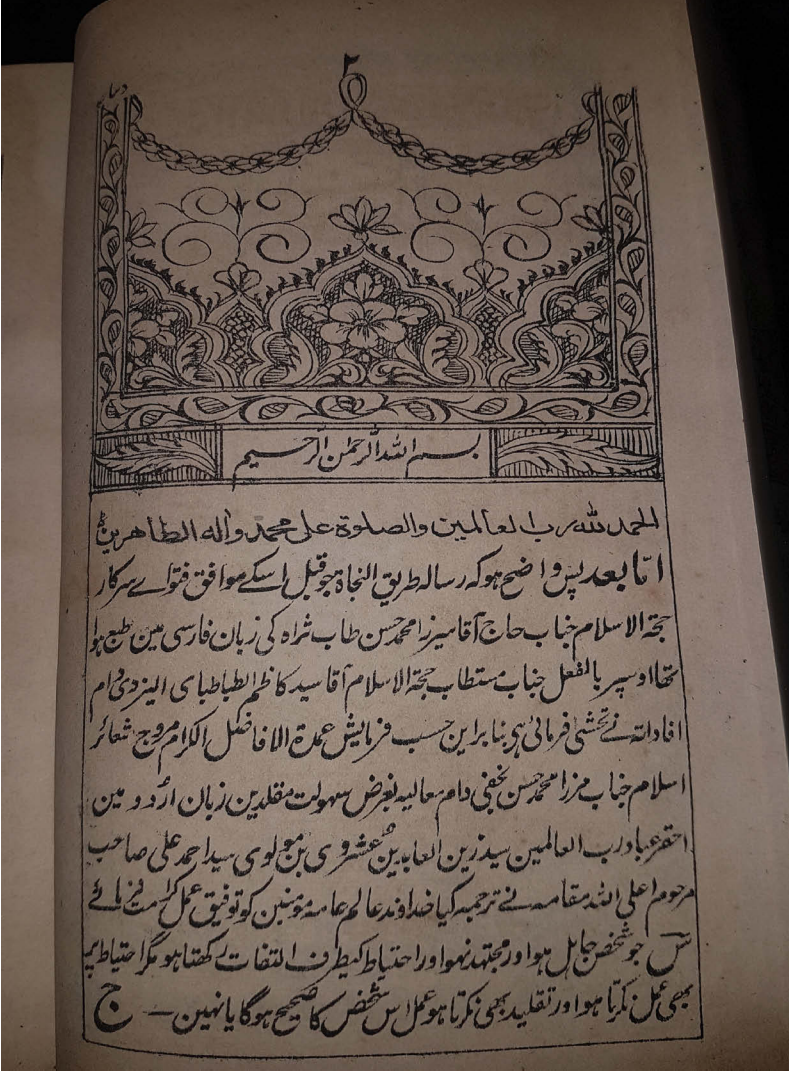 ۲
بسم الله الرحمن الرحیم
الحمد لله رب العالمین والصلوة علی محمد وآله الطاهرین
امّا بعد پس واضح ہو کہ رسالہ طریق النجاة جو قبل اسکے موافق فتواے سرکار
حجة الاسلام جناب حاج آقا میرزا محمد حسن طاب ثراہ کی زبان فارسی مین طبع ہوا
تھا اوسپر بالفعل جناب مستطاب حجة الاسلام آقا سید کاظم الطباطبای الیزدی دام
افاداتہ نے تحشی فرمائی ہی بنابراین حسب فرمایش عمدة الافاضل الکرام مروج شعائر
اسلام جناب مرزا محمد حسن نجفی دام معالیہ بغرض سہولت مقلدین زبان اردو مین
احقر عباد رب العالمین سید زین العابدین عشروی بن مولوی سید احمد علی صاحب
مرحوم اعلی اللہ مقامہ نے ترجمہ کیا خداوند عالم عامہ مؤمنین کو توفیق عمل کرامت فرمائے
س جو شخص جاہل ہو اور مجتہد نہو اور احتیاط کیطرف التفات رکھتا ہو مگر احتیاط پر
بھی عمل نکرتا ہو اور تقلید بھی نکرتا ہو عمل اس شخص کا صحیح ہوگا یا نہین — ج